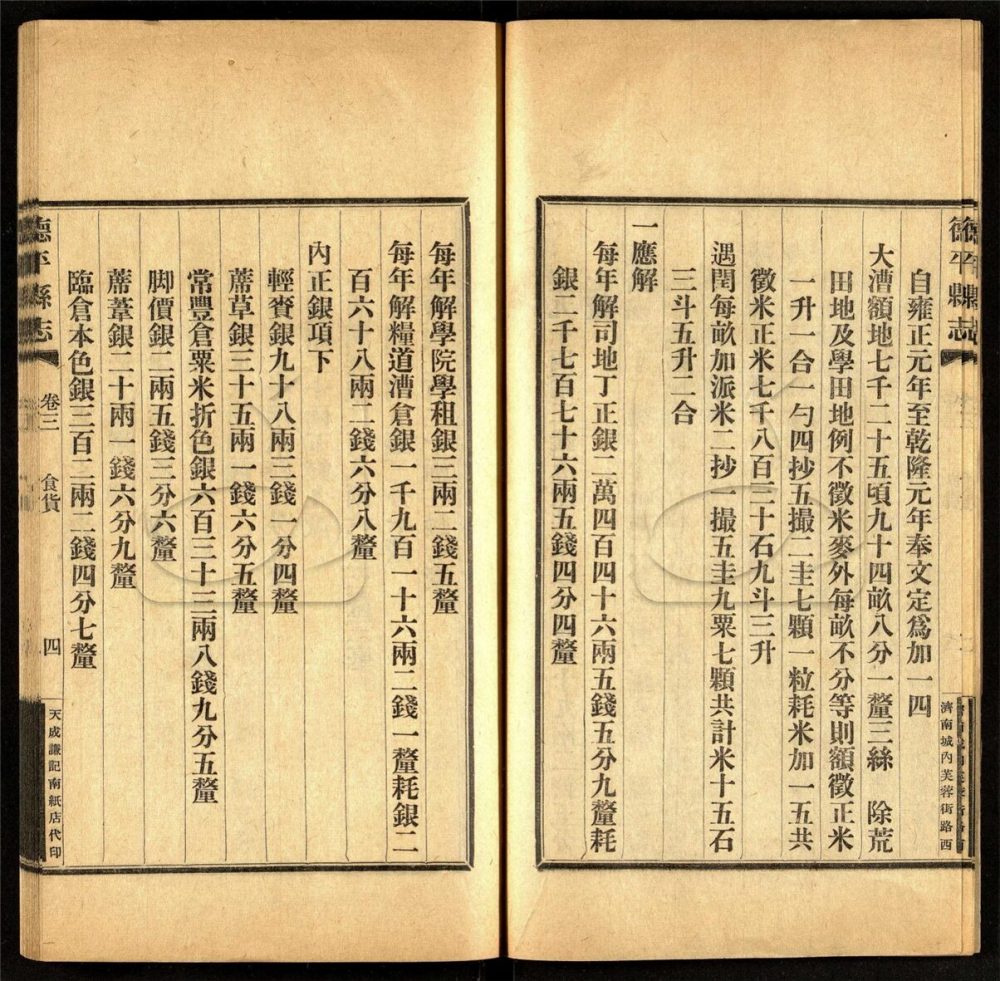 德平縣志
濟南城內芙蓉街路西
自雍正元年至乾隆元年奉文定爲加一四
大漕額地七千二十五頃九十四畝八分一釐三絲　除荒
田地及學田地例不徵米麥外每畝不分等則額徵正米
一升一合一勺四抄五撮二圭七顆一粒耗米加一五共
徵米正米七千八百三十石九斗三升
遇閏每畝加派米二抄一撮五圭九粟七顆共計米十五石
三斗五升二合
一應解
每年解司地丁正銀二萬四百四十六兩五錢五分九釐耗
銀二千七百七十六兩五錢四分四釐
每年解學院學租銀三兩二錢五釐
每年解糧道漕倉銀一千九百一十六兩二錢一釐耗銀二
百六十八兩二錢六分八釐
內正銀項下
輕賚銀九十八兩三錢一分四釐
蓆草銀三十五兩一錢六分五釐
常豐倉粟米折色銀六百三十三兩八錢九分五釐
脚價銀二兩五錢三分六釐
蓆葦銀二十兩一錢六分九釐
臨倉本色銀三百二兩二錢四分七釐
德平縣志
卷三　食貨
四
天成謙記南紙店代印